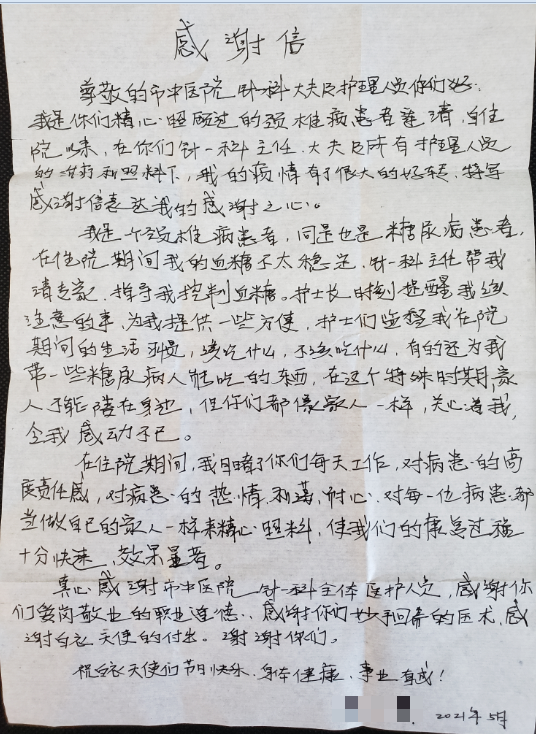 感谢信
尊敬的市中医院针一科大夫及护理人员你们好:
我是你们精心照顾过的颈椎病患者 自住
院以来,在你们针一科主任、大夫及所有护理人员
的治疗和照料下,我的病情有了很大的好转,特写
感谢信表达我的感谢之心。
我是一个颈椎病患者,同是也是糖尿病患者,
在住院期间我的血糖不太稳定,针一科主任帮我
请专家,指导我控制血糖。护士长时刻提醒我该
注意的事,为我提供一些方便,护士们 我在院
期间的生活 ,该吃什么,不该吃什么,有的还为我
带一些糖尿病人能吃的东西,在这个特殊时期,家
人不能陪在身边,但你们都像家人一样,关心着我,
令我感动不已。
在住院期间,我目睹了你们每天工作,对病患的高
度责任感,对病患的热情和蔼,耐心.对每一位病患都
当做自己的家人一样来精心照料,使我们的康复过程
十分快速,效果显著。
真心感谢市中医院针一科全体医护人员,感谢你
们爱岗敬业的职业道德、感谢你们妙手回春的医术,感
谢白衣天使的付出。谢谢你们。
祝白衣天使们节日快乐.身体健康、事业有成!
2021年5月